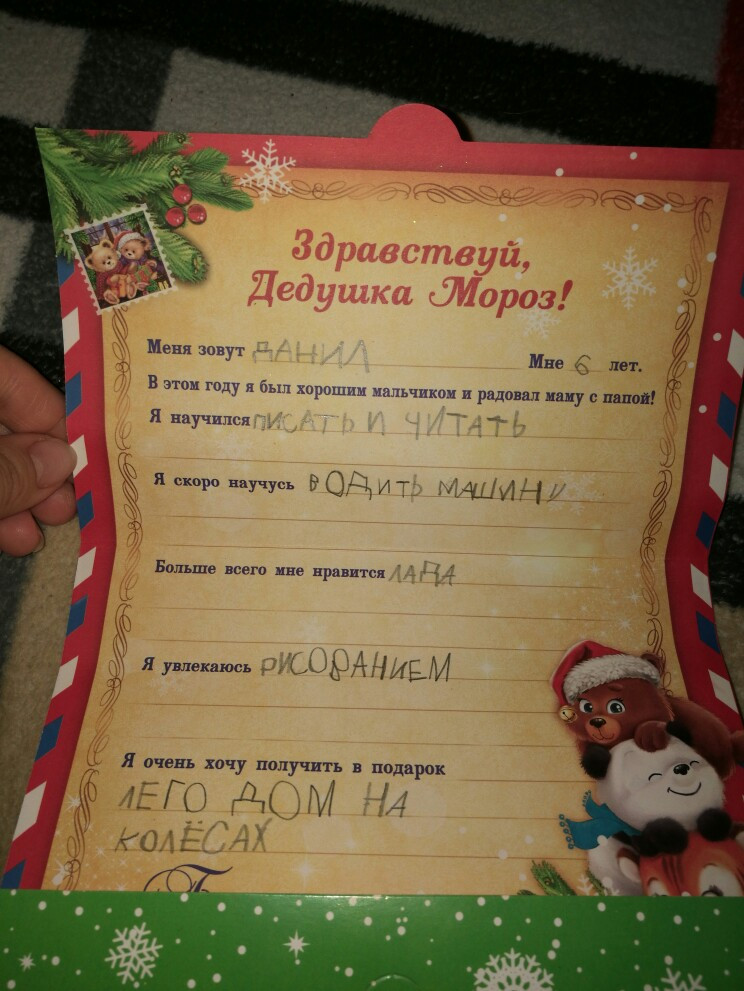 Здравствуй,
Дедушка Мороз!
Меня зовут ДАНИЛ Мне 6 лет.
В этом году я был хорошим мальчиком и радовал маму с папой!
Я научился ПИСАТЬ И ЧИТАТЬ
Я скоро научусь ВОДИТЬ МАШИНУ
Больше всего мне нравится ЛАДА
Я увлекаюсь РИСОВАНИЕМ
Я очень хочу получить в подарок
ЛЕГО ДОМ НА
КОЛЁСАХ